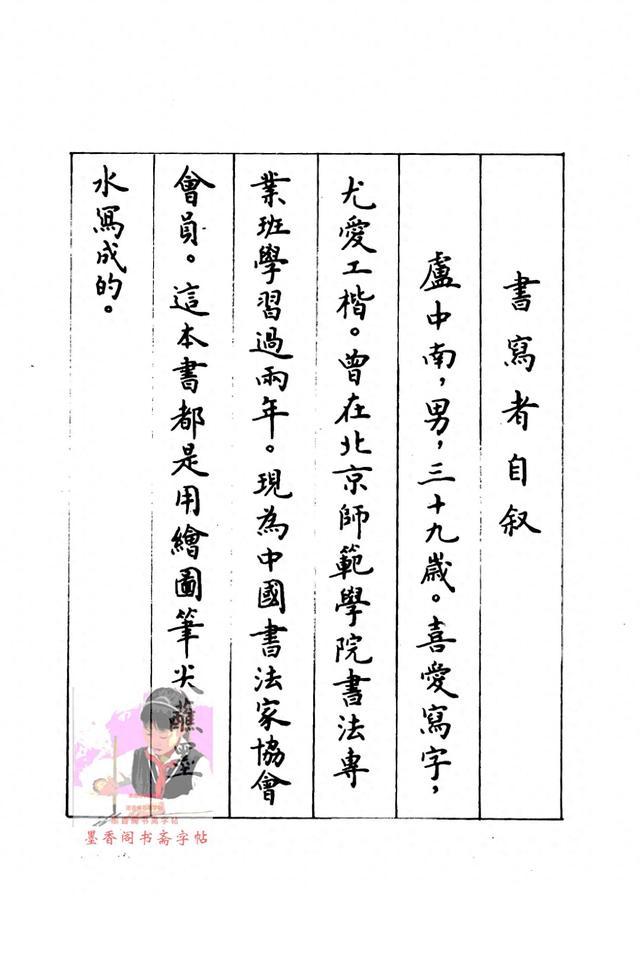 書寫者自叙
盧中南，男，三十九歲。喜愛寫字，
尤愛工楷。曾在北京師範學院書法專
業班學習過兩年。現為中國書法家協會
會員。這本書都是用繪圖筆尖蘸墨
水寫成的。
墨香阁书斋字帖
墨香阁书斋字帖